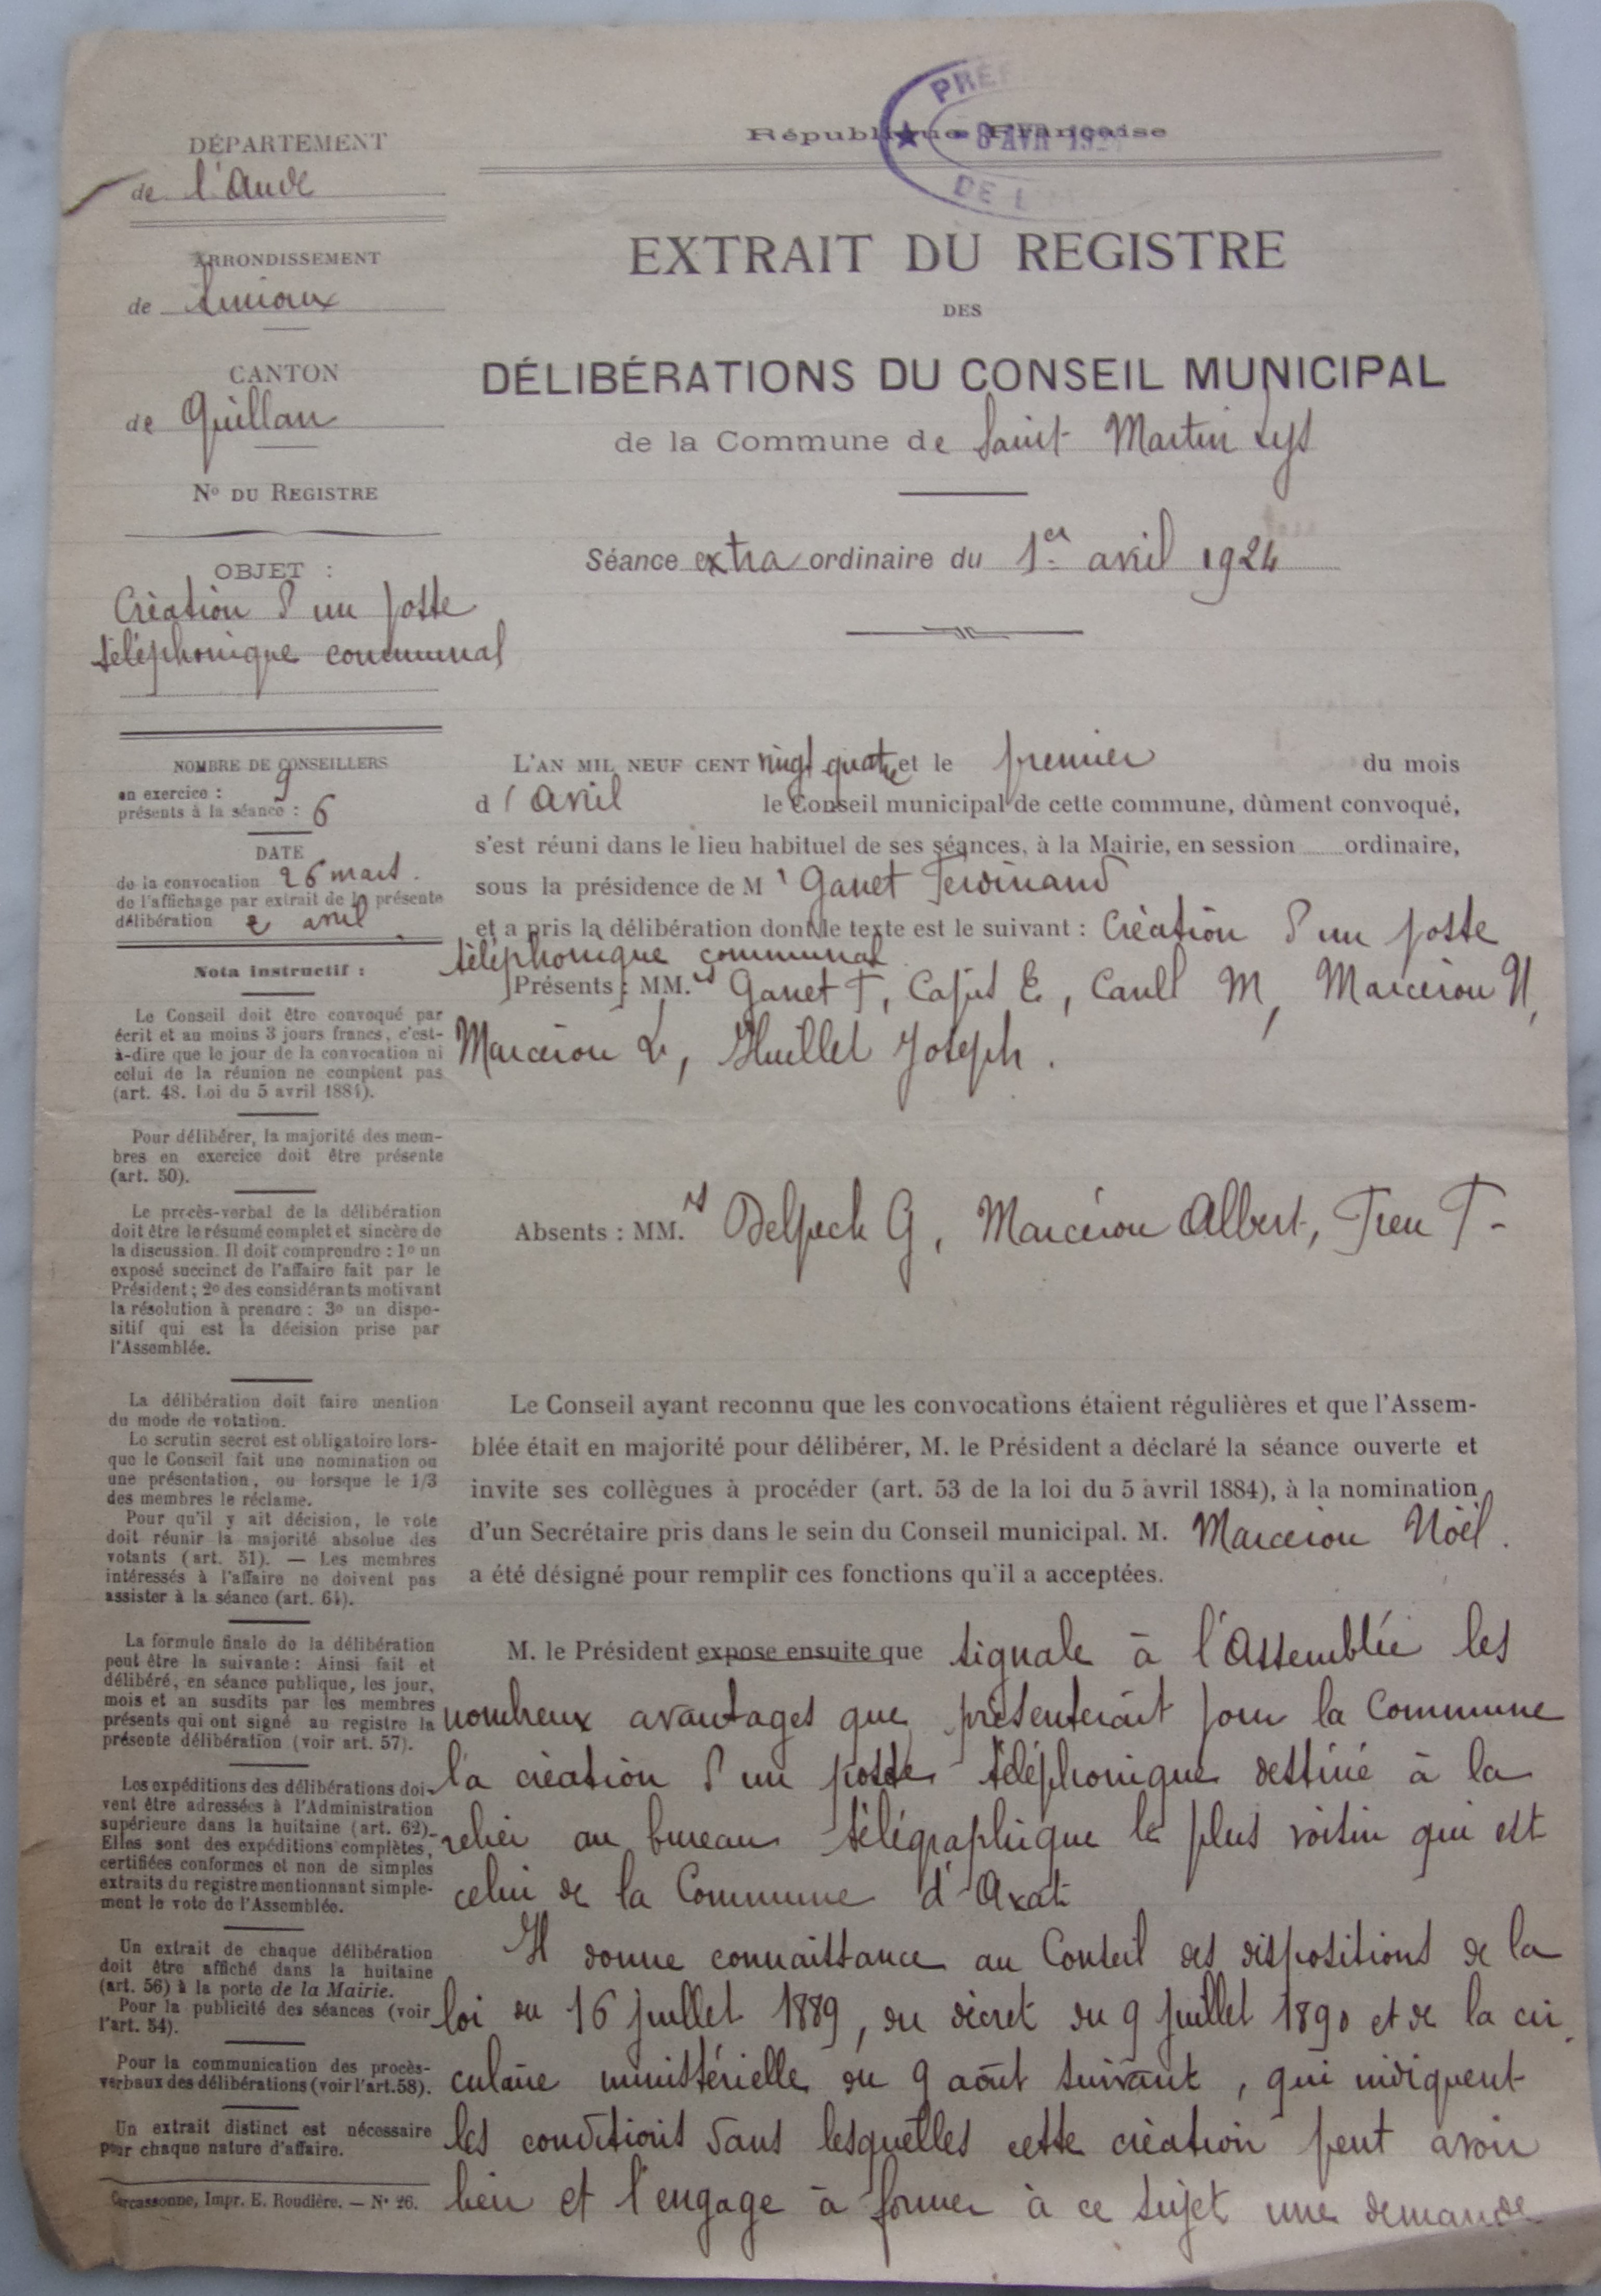 DÉPARTEMENT
de l'Aude
ARRONDISSEMENT
de Limoux
CANTON
de Quillan
No DU REGISTRE
OBJET :
Création d'un poste
téléphonique communal
NOMBRE DE CONSEILLERS
en exercice : 9
présents à la séance : 6
DATE
de la convocation 26 mars.
de l'affichage par extrait de la présente
délibération 2 avril
Nota Instructif :
Le Conseil doit être convoqué par
écrit et au moins 3 jours francs, c'est-
à-dire que le jour de la convocation ni
celui de la réunion ne comptent pas
(art. 48. Loi du 5 avril 1884).
Pour délibérer, la majorité des mem-
bres en exercice doit être présente
(art. 50).
Le procès-verbal de la délibération
doit être le résumé complet et sincère de
la discussion. Il doit comprendre : 1o un
exposé succinct de l'affaire fait par le
Président ; 2o des considérants motivant
la résolution à prendre : 3o un dispo-
sitif qui est la décision prise par
l'Assemblée.
La délibération doit faire mention
du mode de votation.
Le scrutin secret est obligatoire lors-
que le Conseil fait une nomination ou
une présentation, ou lorsque le 1/3
des membres le réclame.
Pour qu'il y ait décision, le vote
doit réunir la majorité absolue des
votants (art. 51). — Les membres
intéressés à l'affaire ne doivent pas
assister à la séance (art. 64).
La formule finale de la délibération
peut être la suivante : Ainsi fait et
délibéré, en séance publique, les jour,
mois et an susdits par les membres
présents qui ont signé au registre la
présente délibération (voir art. 57).
Les expéditions des délibérations doi-
vent être adressées à l'Administration
supérieure dans la huitaine (art. 62).
Elles sont des expéditions complètes,
certifiées conformes et non de simples
extraits du registre mentionnant simple-
ment le vote de l'Assemblée.
Un extrait de chaque délibération
doit être affiché dans la huitaine
(art. 56) à la porte de la Mairie.
Pour la publicité des séances (voir
l'art. 54).
Pour la communication des procès-
verbaux des délibérations (voir l'art. 58).
Un extrait distinct est nécessaire
pour chaque nature d'affaire.
Carcassonne, Impr. E. Roudière. — No 26.
République Française
DE L
EXTRAIT DU REGISTRE
DES
DÉLIBÉRATIONS DU CONSEIL MUNICIPAL
de la Commune de Saint Martin Lys
Séance extra ordinaire du 1er avril 1924
L'AN MIL NEUF CENT vingt quatre et le premier du mois
d'avril le Conseil municipal de cette commune, dûment convoqué,
s'est réuni dans le lieu habituel de ses séances, à la Mairie, en session ordinaire,
sous la présidence de Mr Ganet Ferdinand
et a pris la délibération dont le texte est le suivant : Création d'un poste
téléphonique communal
Présents : MM.rs Ganet F, Cajus E, M, Marcérou N,
Marcérou L, Huillet Joseph.
Absents : MM.rs Delpech G, Marcérou Albert, T-
Le Conseil ayant reconnu que les convocations étaient régulières et que l'Assem-
blée était en majorité pour délibérer, M. le Président a déclaré la séance ouverte et
invite ses collègues à procéder (art. 53 de la loi du 5 avril 1884), à la nomination
d'un Secrétaire pris dans le sein du Conseil municipal. M. Marcérou Nöel.
a été désigné pour remplir ces fonctions qu'il a acceptées.
M. le Président expose ensuite que signale à l'Assemblée les
nombreux avantages que présenterait pour la Commune
la création d'un poste téléphonique destiné à la
relier au bureau télégraphique le plus voisin qui est
celui de la Commune d'Axat
Il donne connaissance au Conseil des dispositions de la
loi du 16 juillet 1889, du décret du 9 juillet 1890 et de la cir
culaire ministérielle du 9 août suivant, qui indiquent
les conditions dans lesquelles cette création peut avoir
lieu et l'engage à former à ce sujet une demande